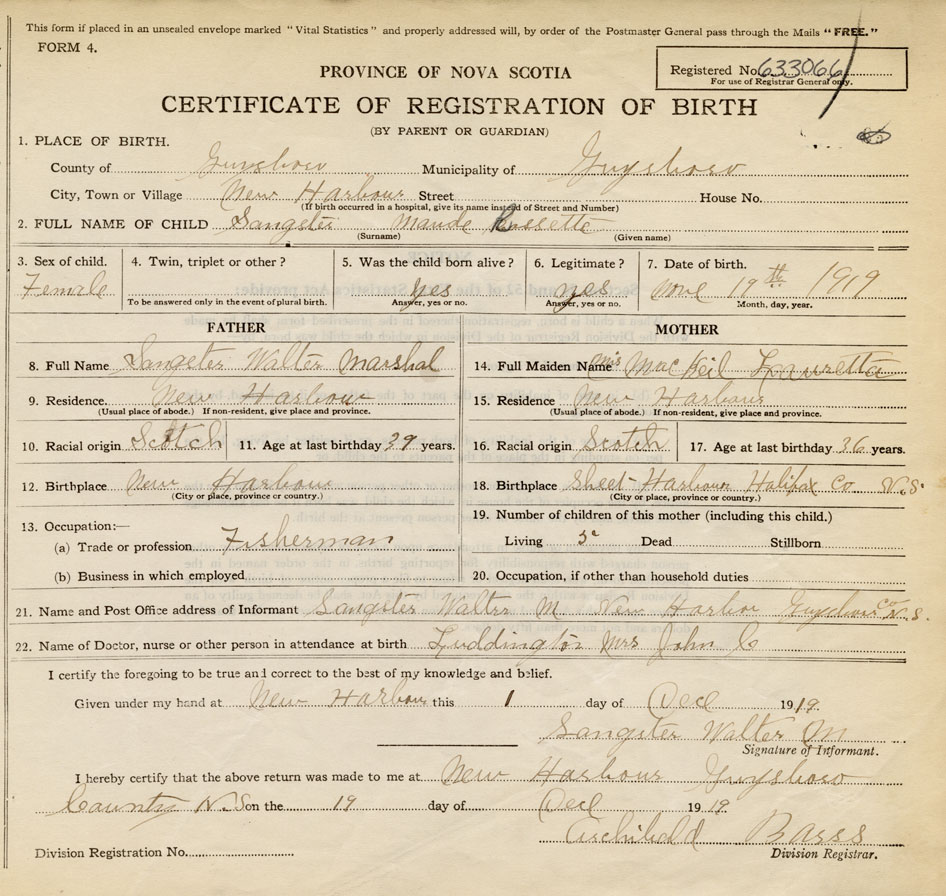 This form if placed in an unsealed envelope marked "Vital Statistics" and properly addressed will, by order of the Postmaster General pass through the Mails "FREE."
FORM 4.
Registered No. 633066
For use of Registrar General only.
PROVINCE OF NOVA SCOTIA
CERTIFICATE OF REGISTRATION OF BIRTH
(BY PARENT OR GUARDIAN)
1. PLACE OF BIRTH.
County of Guysboro Municipality of Guysboro
City, Town or Village New Harbour Street House No.
(If birth occurred in a hospital, give its name instead of Street and Number)
2. FULL NAME OF CHILD Sangster Maude
(Surname) (Given name)
3. Sex of child. 4. Twin, triplet or other? 5. Was the child born alive? 6. Legitimate? 7. Date of birth.
Female yes yes 19th 1919
To be answered only in the event of plural birth. Answer, yes or no. Answer, yes or no. Month, day, year.
FATHER MOTHER
8. Full Name Sangster Walter Marshal 14. Full Maiden Name Mrs Mac Neil Lauretta
9. Residence. New Harbour 15. Residence New Harbour
(Usual place of abode.) If non-resident, give place and province. (Usual place of abode.) If non-resident, give place and province.
10. Racial origin Scotch 11. Age at last birthday 39 years. 16. Racial origin Scotch 17. Age at last birthday 36 years.
12. Birthplace New Harbour 18. Birthplace Sheet Harbour Halifax Co N.S.
(City or place, province or country.) (City or place, province or country.)
13. Occupation:— 19. Number of children of this mother (including this child.)
(a) Trade or profession Fisherman Living 5 Dead Stillborn
(b) Business in which employed 20. Occupation, if other than household duties
21. Name and Post Office address of Informant Sangster Walter M New Harbor Guysboro Co N.S.
22. Name of Doctor, nurse or other person in attendance at birth Luddington Mrs John C
I certify the foregoing to be true and correct to the best of my knowledge and belief.
Given under my hand at New Harbour this 1 day of Dec 1919.
Sangster Walter M
Signature of Informant.
I hereby certify that the above return was made to me at New Harbour Guysboro
County N.S on the 19 day of Dec 1919.
Barss
Division Registration No. Division Registrar.